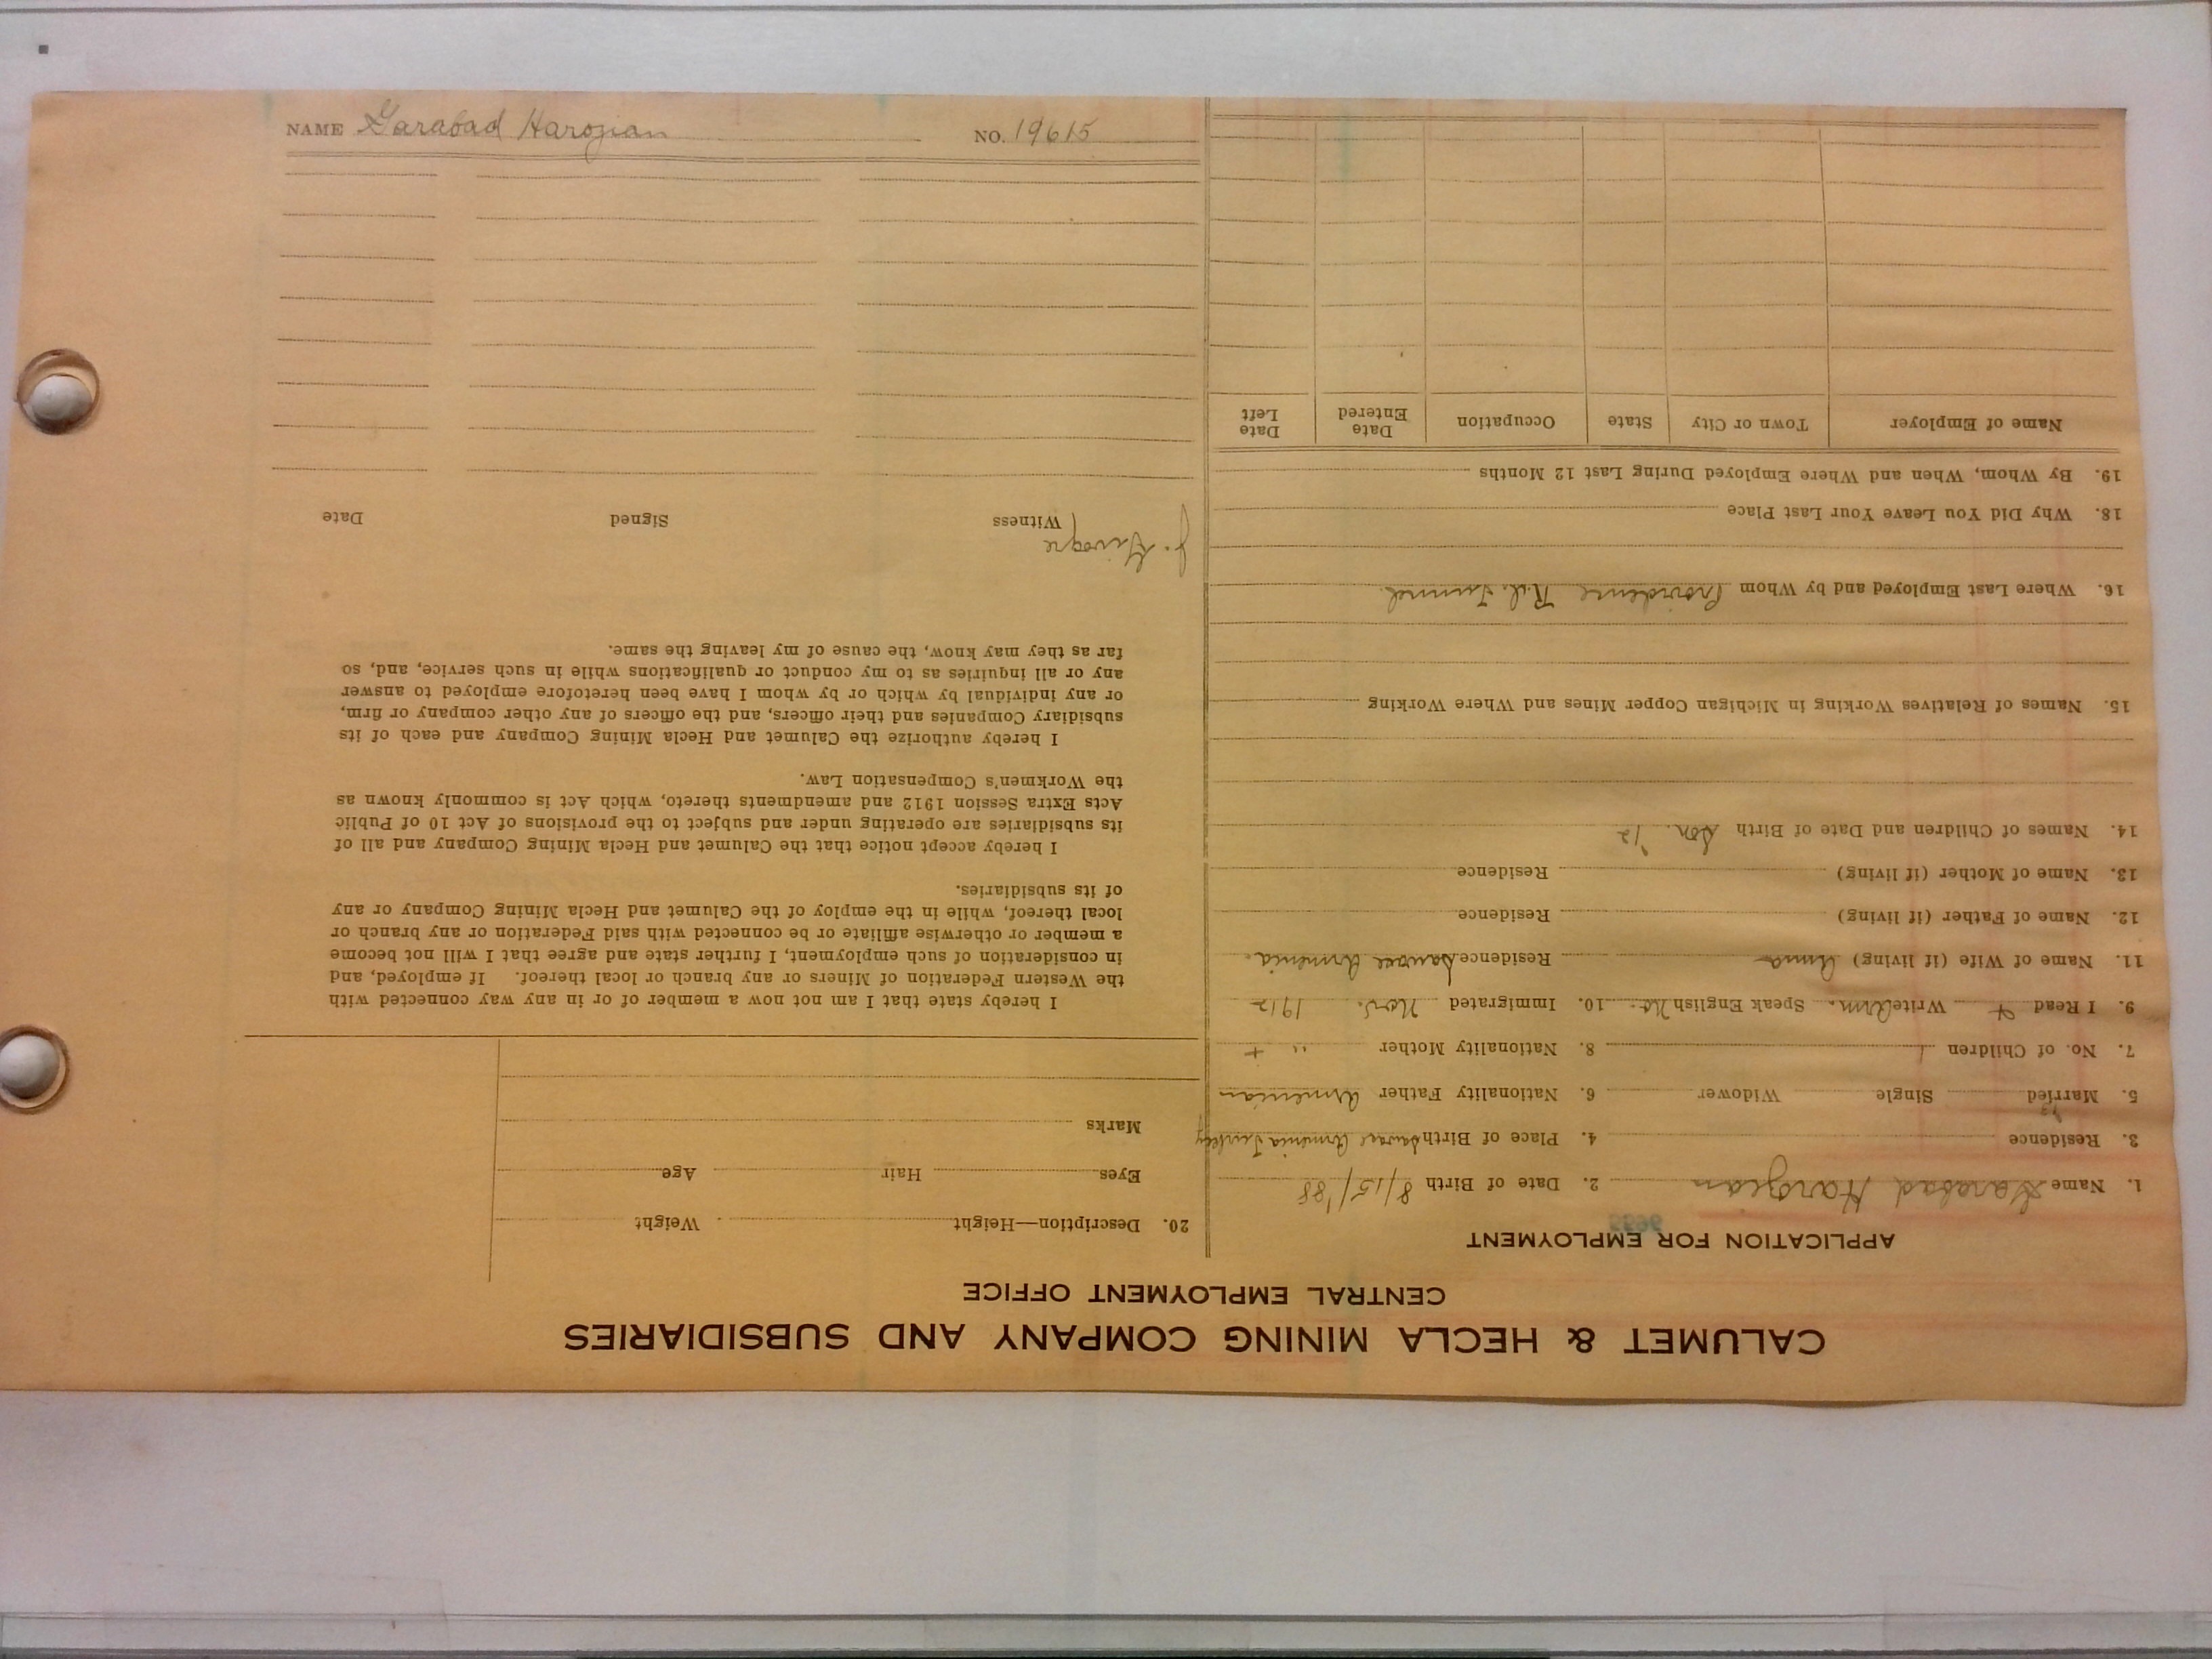 CALUMET & HECLA MINING COMPANY AND SUBSIDIARIES
CENTRAL EMPLOYMENT OFFICE
APPLICATION FOR EMPLOYMENT
1. Name Garabad Harojian 2. Date of Birth 8/15/'88
3. Residence 4. Place of Birth Armenia Turkey
5. Married Single Widower 6. Nationality Father Armenian
7. No. of Children 1 8. Nationality Mother " +
9. I Read + Write Arm. Speak English No. 10. Immigrated Nov. 1912
11. Name of Wife (if living) Anna Residence Armenia
12. Name of Father (if living) Residence
13. Name of Mother (if living) Residence
14. Names of Children and Date of Birth Son. '12
15. Names of Relatives Working in Michigan Copper Mines and Where Working
16. Where Last Employed and by Whom Providence R.I. Tunnel.
18. Why Did You Leave Your Last Place
19. By Whom, When and Where Employed During Last 12 Months
Name of Employer Town or City State Occupation Date Entered Date Left
20. Description—Height Weight
Eyes Hair Age
Marks
I hereby state that I am not now a member of or in any way connected with
the Western Federation of Miners or any branch or local thereof. If employed, and
in consideration of such employment, I further state and agree that I will not become
a member or otherwise affiliate or be connected with said Federation or any branch or
local thereof, while in the employ of the Calumet and Hecla Mining Company or any
of its subsidiaries.
I hereby accept notice that the Calumet and Hecla Mining Company and all of
its subsidiaries are operating under and subject to the provisions of Act 10 of Public
Acts Extra Session 1912 and amendments thereto, which Act is commonly known as
the Workmen's Compensation Law.
I hereby authorize the Calumet and Hecla Mining Company and each of its
subsidiary Companies and their officers, and the officers of any other company or firm,
or any individual by which or by whom I have been heretofore employed to answer
any or all inquiries as to my conduct or qualifications while in such service, and, so
far as they may know, the cause of my leaving the same.
Witness Signed Date
NAME Garabad Harojian NO. 19615